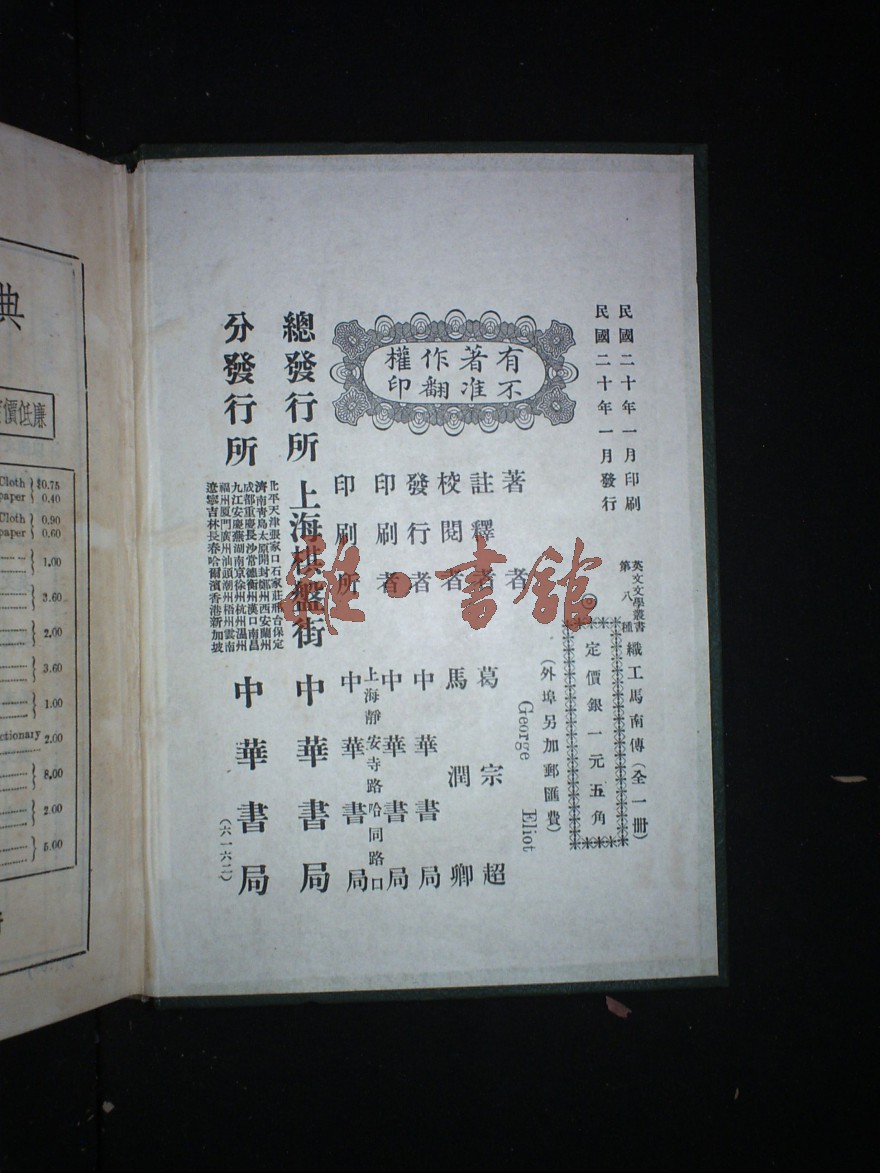 民國二十年一月印刷
民國二十年一月發行
英文文學叢書
第八種
織工馬南傳(全一冊)
定價銀一元五角
(外埠另加郵匯費)
有著作權
不准翻印
著者 George Eliot
註釋者 葛宗超
校閱者 馬潤卿
發行者 中華書局
印刷者 中華書局
上海靜安寺路哈同路口
印刷所 中華書局
總發行所 上海棋盤街 中華書局
分發行所 中華書局
北平天津張家口石家莊邢台保定
濟南青島太原開封鄭州西安蘭州
成都重慶長沙常德衡州漢口南昌
九江安慶蕪湖南京徐州杭州溫州
福州厦門廣州汕頭潮州梧州雲南
遼寧吉林長春哈爾濱香港新加坡
(六一六二)
雜·書館
典
價低廉
Cloth $0.75
paper 0.40
Cloth 0.90
paper 0.60
1.00
3.60
2.00
3.60
1.00
ctionary 2.00
8.00
2.00
5.00